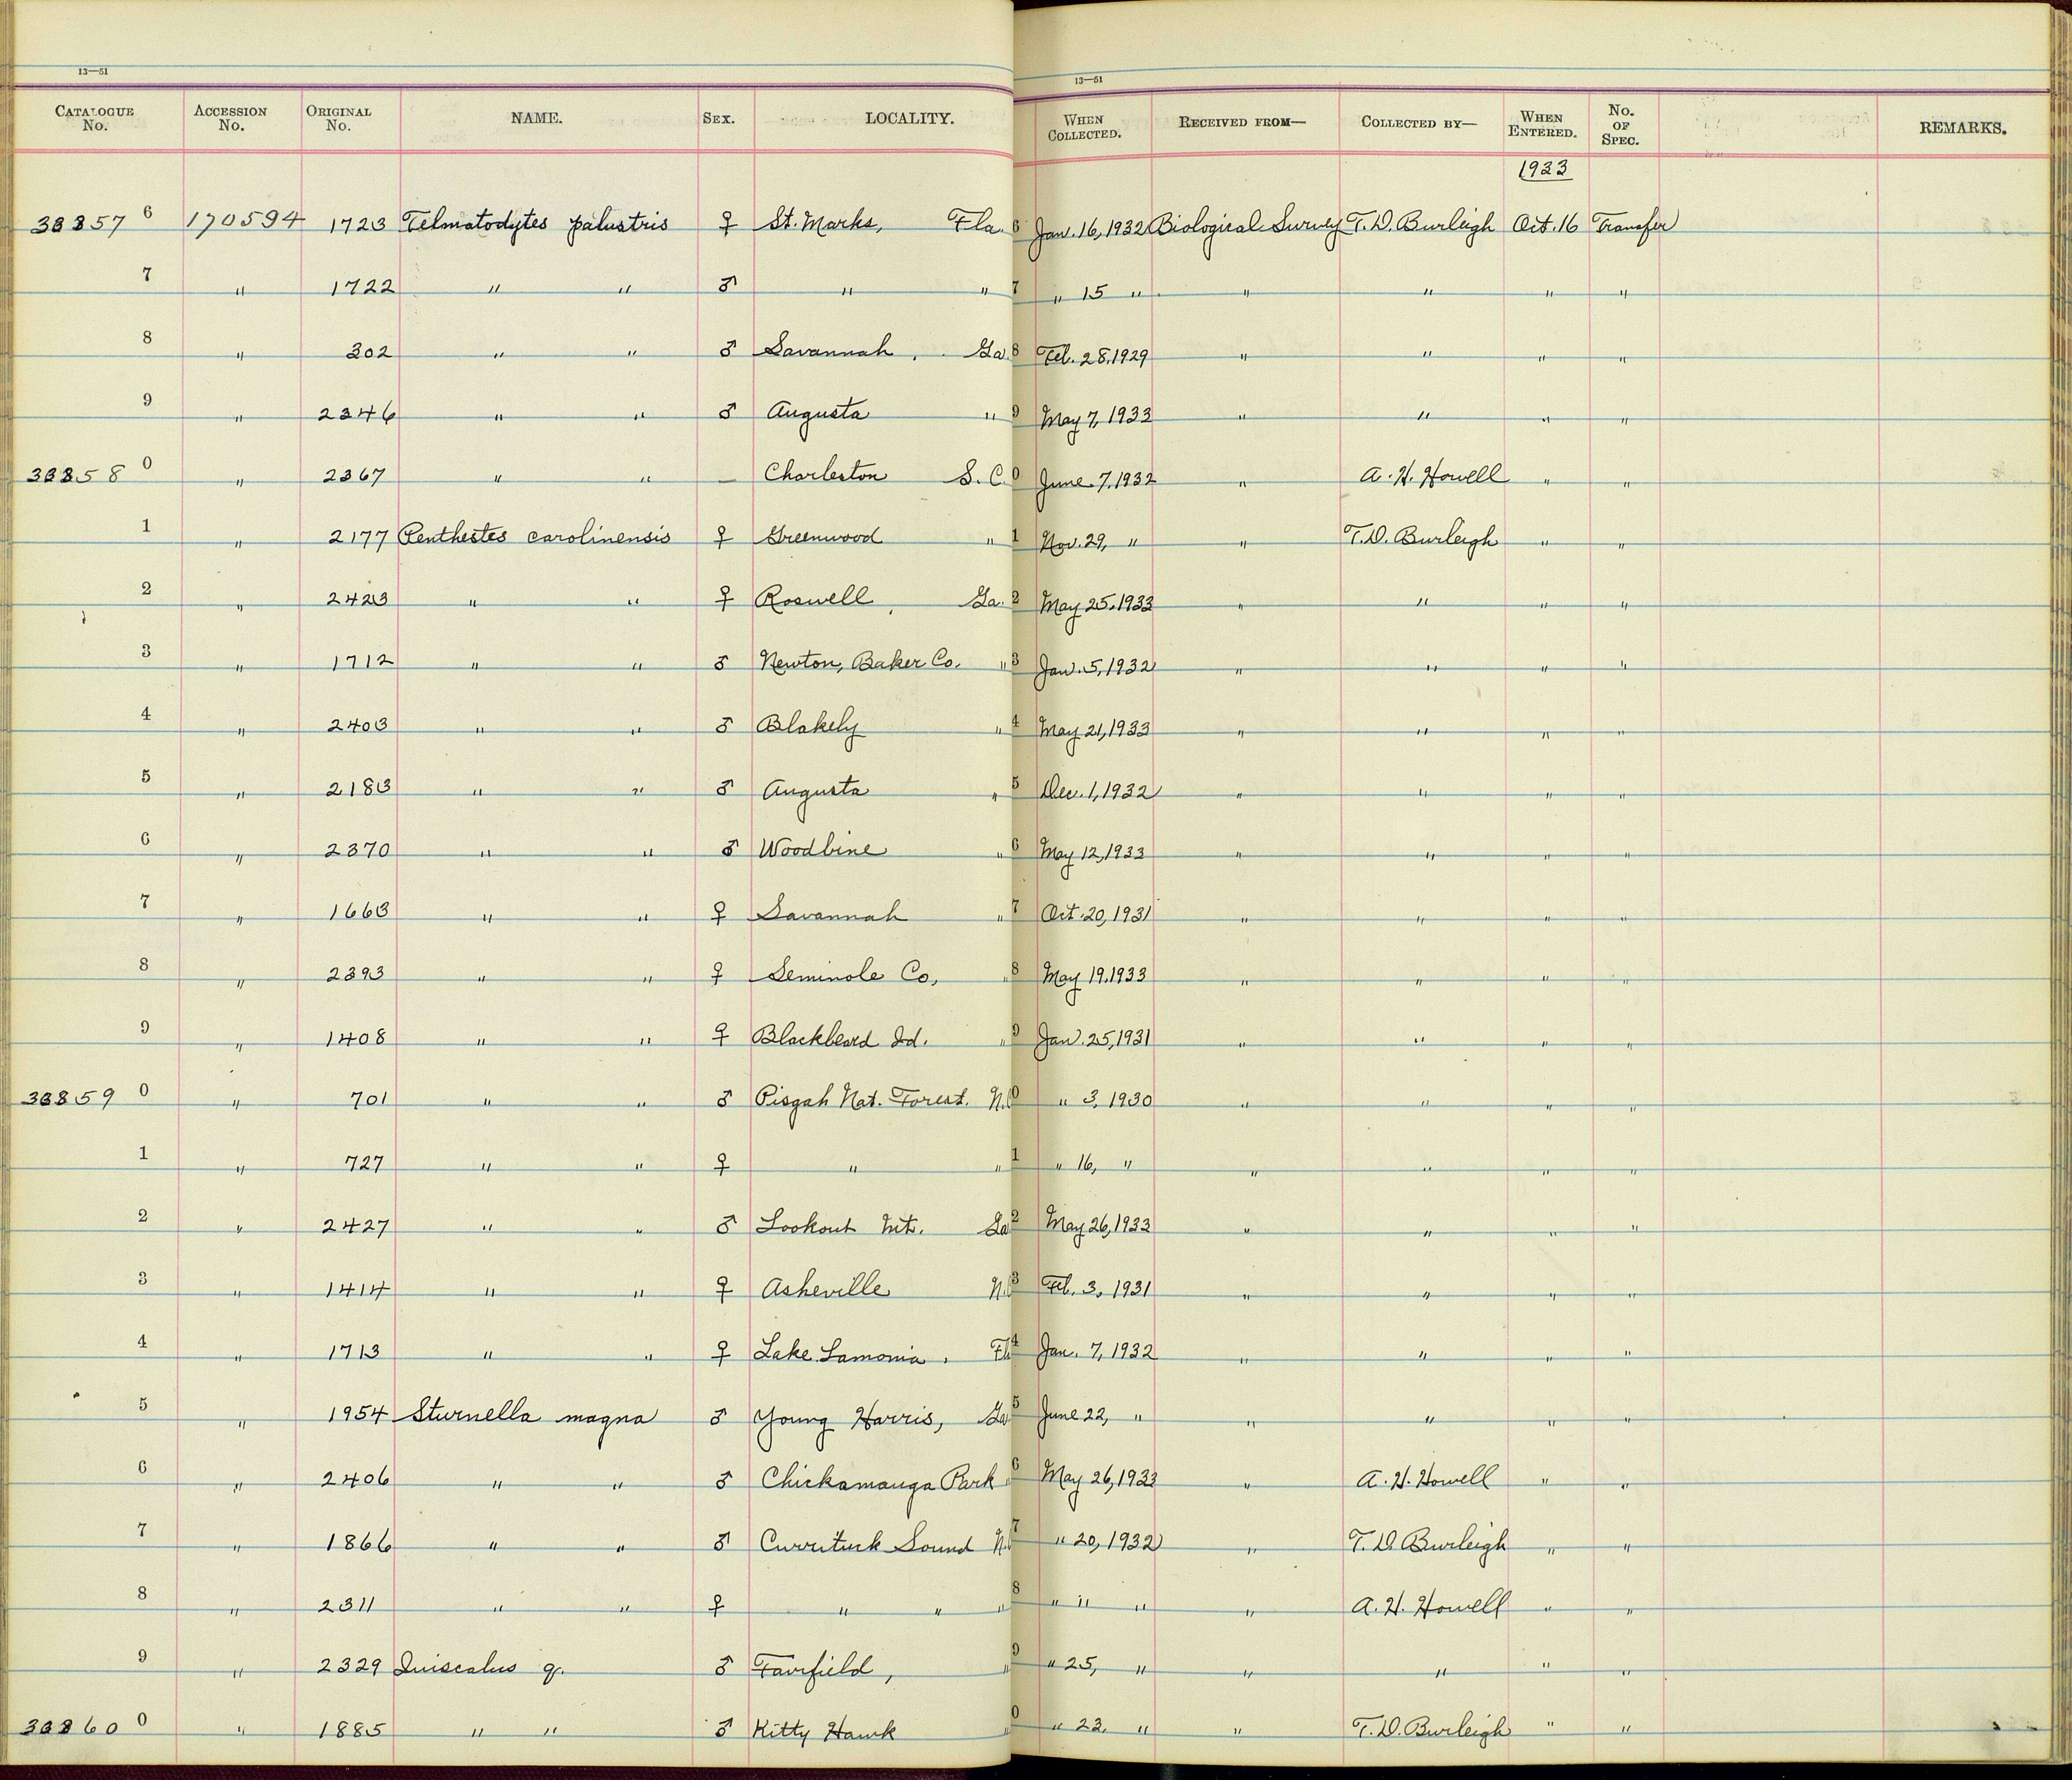 13—51 13—51
CATALOGUE No. ACCESSION No. ORIGINAL No. NAME. SEX. LOCALITY. WHEN COLLECTED. RECEIVED FROM— COLLECTED BY— WHEN ENTERED. No. OF SPEC. REMARKS.
1933
33857 6 170594 1723 Telmatodytes palustris ♀ St. Marks, Fla. 6 Jan. 16, 1932 Biological Survey T. D. Burleigh Oct. 16 Transfer
7 " 1722 " " ♂ " " 7 " 15 " " " " "
8 " 302 " " ♂ Savannah, Ga. 8 Feb. 28, 1929 " " " "
9 " 2346 " " ♂ Augusta " 9 May 7, 1933 " " " "
33858 0 " 2367 " " — Charleston S. C. 0 June 7, 1932 " A. H. Howell " "
1 " 2177 Penthestes carolinensis ♀ Greenwood " 1 Nov. 29, " " T. D. Burleigh " "
2 " 2423 " " ♀ Roswell, Ga. 2 May 25, 1933 " " " "
3 " 1712 " " ♂ Newton, Baker Co. " 3 Jan. 5, 1932 " " " "
4 " 2403 " " ♂ Blakely " 4 May 21, 1933 " " " "
5 " 2183 " " ♂ Augusta " 5 Dec. 1, 1932 " " " "
6 " 2370 " " ♂ Woodbine " 6 May 12, 1933 " " " "
7 " 1663 " " ♀ Savannah " 7 Oct. 20, 1931 " " " "
8 " 2393 " " ♀ Seminole Co, " 8 May 19, 1933 " " " "
9 " 1408 " " ♀ Blackbeard Id. " 9 Jan. 25, 1931 " " " "
33859 0 " 701 " " ♂ Pisgah Nat. Forest. N.C 0 " 3, 1930 " " " "
1 " 727 " " ♀ " " 1 " 16, " " " " "
2 " 2427 " " ♂ Lookout Mt. Ga 2 May 26, 1933 " " " "
3 " 1414 " " ♀ Asheville N.C 3 Feb. 3, 1931 " " " "
4 " 1713 " " ♀ Lake Iamonia, Fla 4 Jan. 7, 1932 " " " "
5 " 1954 Sturnella magna ♂ Young Harris, Ga 5 June 22, " " " " "
6 " 2406 " " ♂ Chickamauga Park " 6 May 26, 1933 " A. H. Howell " "
7 " 1866 " " ♂ Currituck Sound N.C 7 " 20, 1932 " T. D. Burleigh " "
8 " 2311 " " ♀ " " " 8 " " " " A. H. Howell " "
9 " 2329 Quiscalus q. ♂ Fairfield, " 9 " 25, " " " " "
33860 0 " 1885 " " ♂ Kitty Hawk " 0 " 23, " " T. D. Burleigh " "